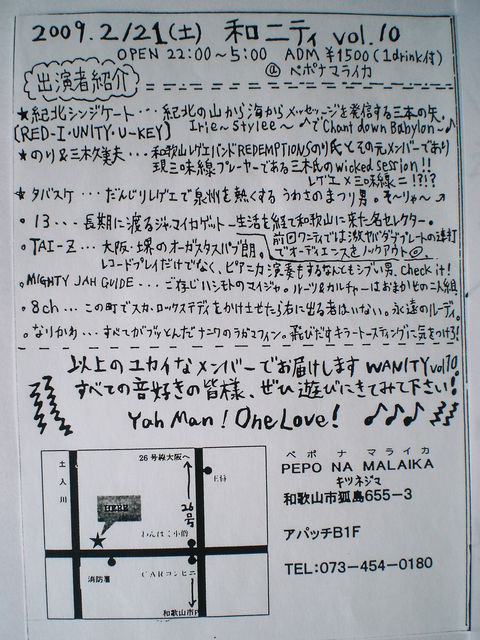 2009.2/21(土) 和ニティ vol.10
OPEN 22:00～5:00 ADM ¥1500(1drink付)
@ ペポナマライカ
出演者紹介
★紀北シンジケート…紀北の山から海からメッセージを発信する三本の矢。
[RED-I・UNITY・U-KEY] Irie～stylee～でChant down Babylon～♪
★のり&三木久美夫…和歌山レゲエバンドREDEMPTIONSのり氏とその元メンバーであり
現三味線プレーヤーである三木氏のwicked session!!
レゲエ×三味線=!?!?
★タバスケ…だんじりレゲエで泉州を熱くするうわさのまつり男。そーりゃ～
・13…長期に渡るジャマイカゲットー生活を経て和歌山に来た名セレクター。
前回ワニティでは激ヤバダブプレートの連打でオーディエンスをノックアウト
・TAI-Z…大阪・堺のオーガスタスパブ朗。
レコードプレイだけでなく、ピアニカ演奏もするなんともシブい男。check it!
・MIGHTY JAH GUIDE…ご存じハシモトのマイジャ。ルーツ&カルチャーはおまかせの二人組
・8ch…この町でスカ、ロックステディをかけさせたら右に出る者はいない。永遠のルーディ。
・なりかわ…すべてがブッとんだナニワのラガマフィン。飛びだすキラートースティングに気をつけろ!
以上のユカイなメンバーでお届けします WANITY vol10.
すべての音好きの皆様、ぜひ遊びにきてみて下さい!
Yah Man! One Love! ♪♪♪
土入川
26号線大阪へ
26号
HERE
わんぱく小僧
消防署
CARコンビニ
和歌山市
ペポナマライカ
PEPO NA MALAIKA
キツネジマ
和歌山市狐島655-3
アパッチB1F
TEL:073-454-0180